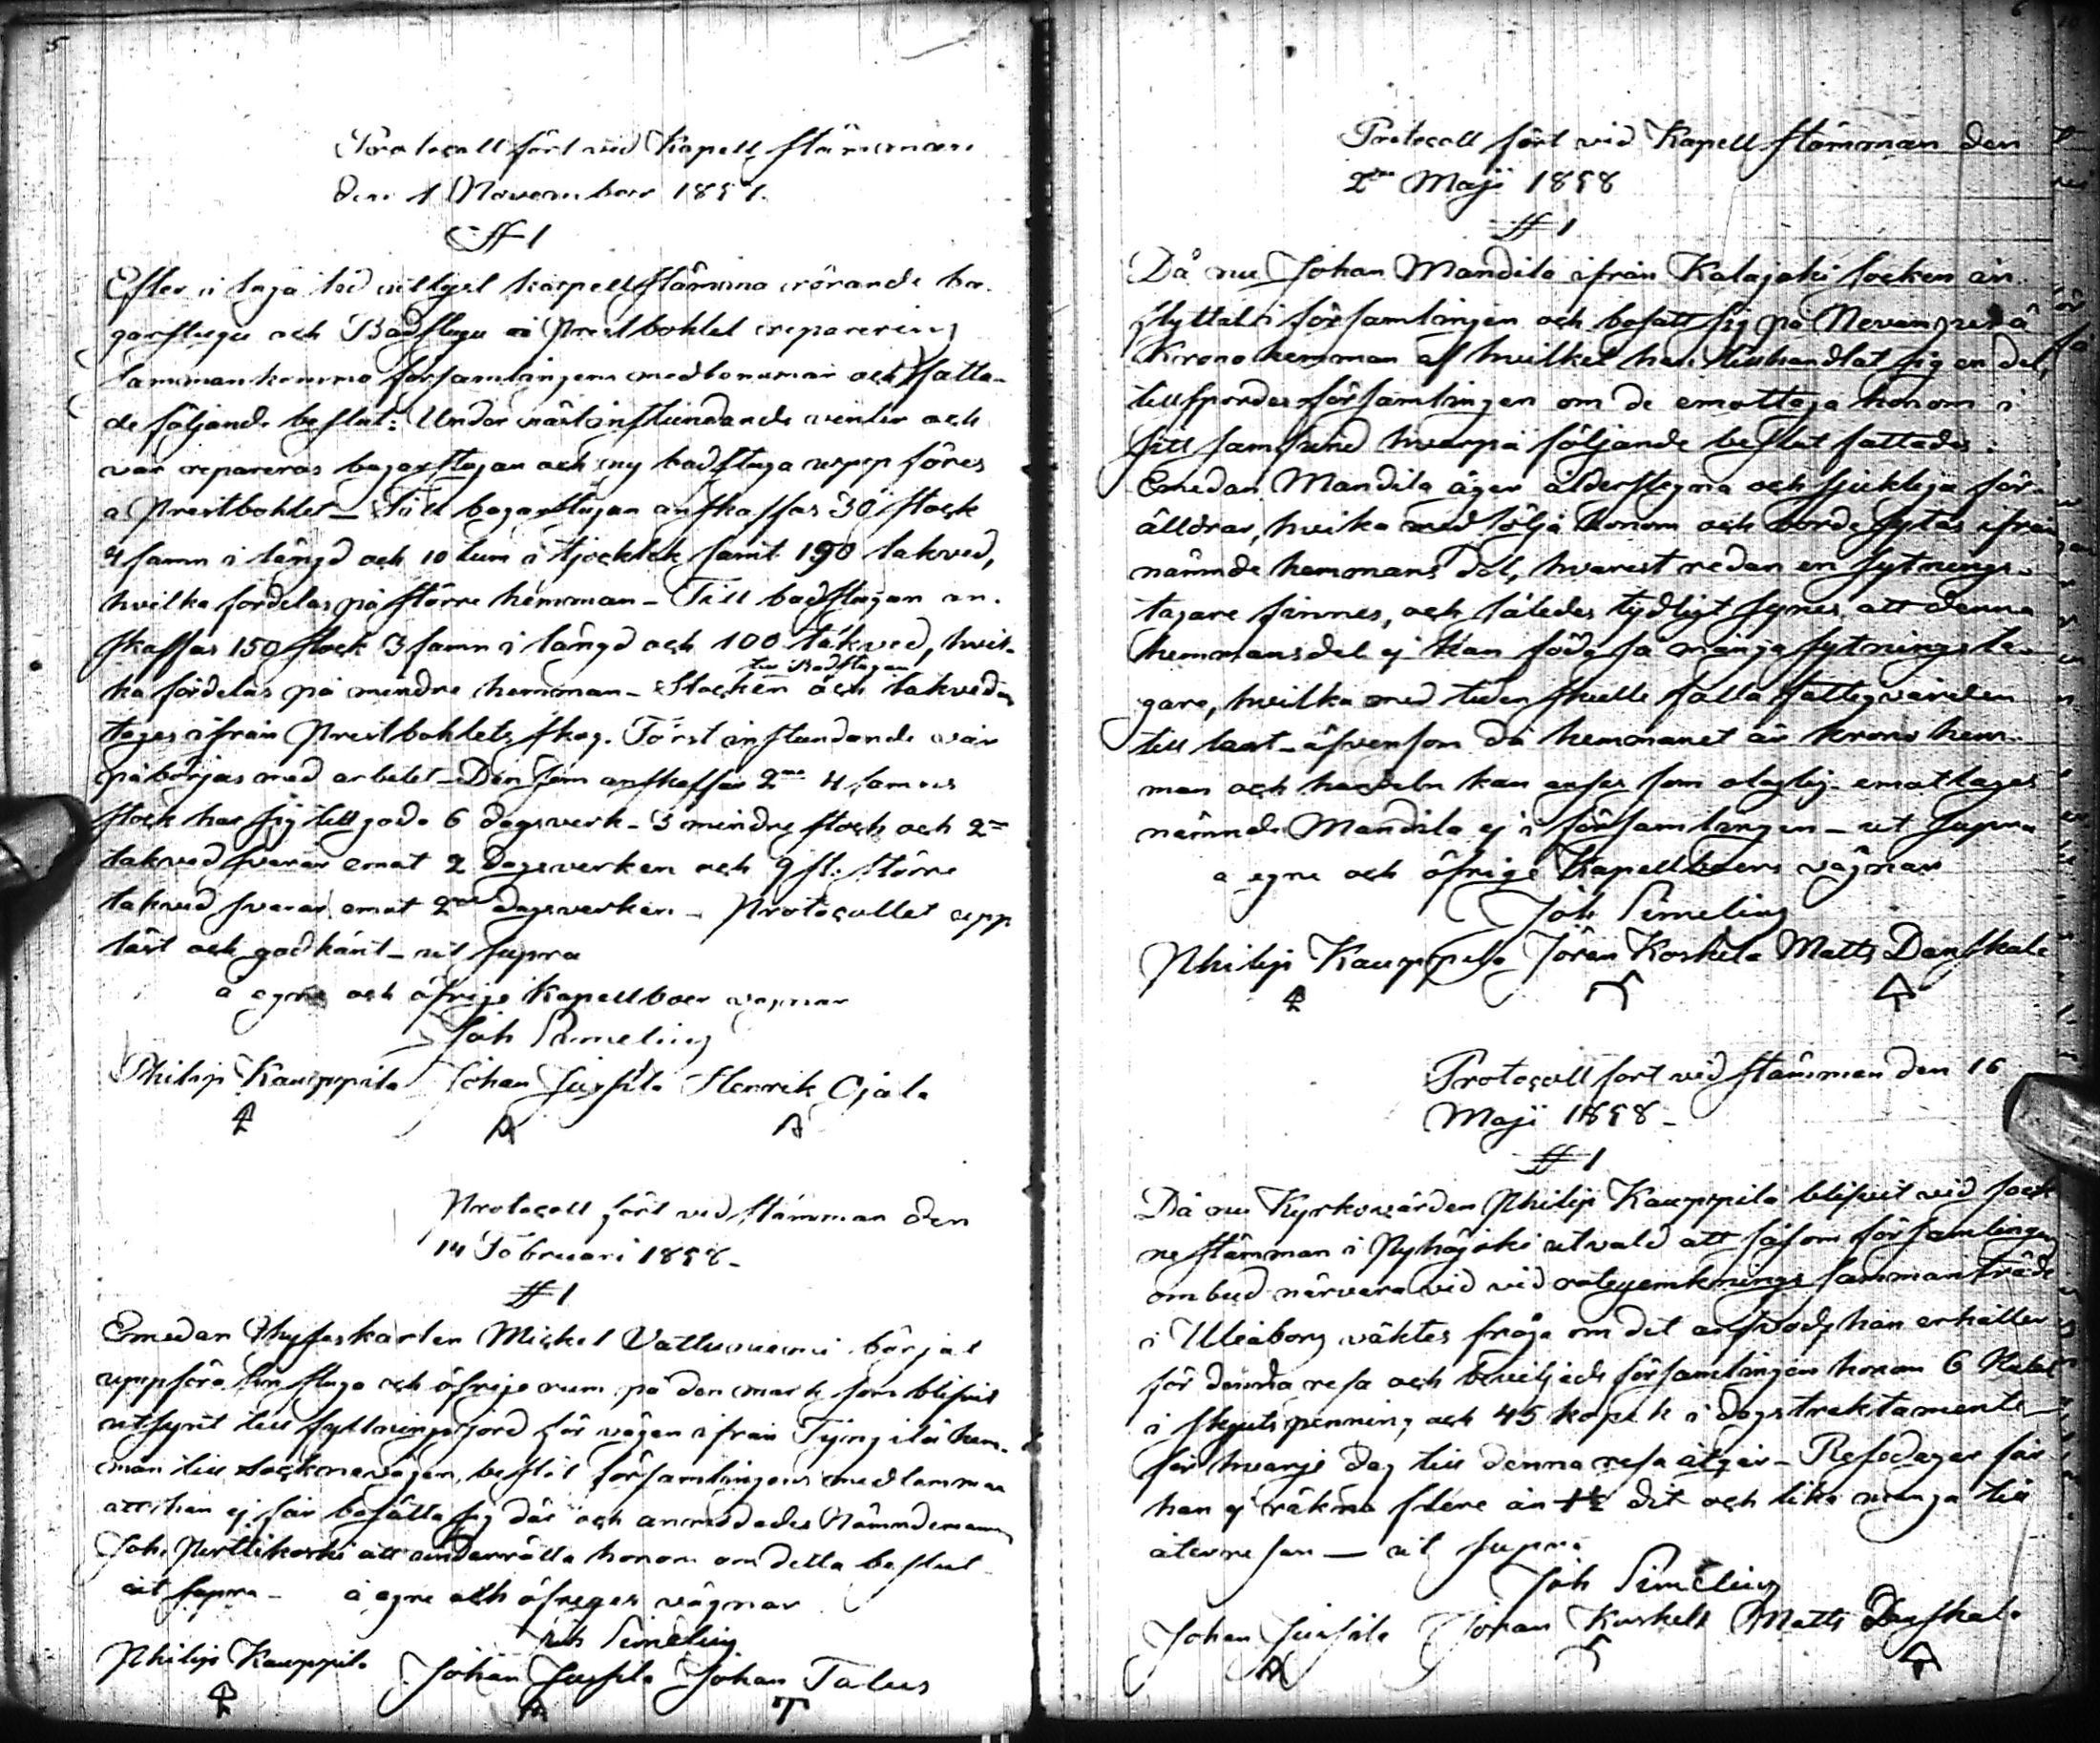 5
Protocoll fört vid Kapell stämman
den 1 November 1857.
§ 1
Efter i laga tid utlyst kapellstämma rörande ba-
garstugu och Badstugu å Prestbohlet reparering
samman kommo församlingens medlemmar och fatta-
de följande beslut: Under nästinstundande vinter och
vår repareras bagarstugan och ny badstuga upp föres
å Prestbohlet – Till bagarstugan anskaffas 30 stock
4 famn i längd och 10 tum i tjocklek samt 190 takved,
hvilka fördelas på större hemman – Till badstugan an-
skaffas 150 stock 3 famn i längd och 100 takved, hvil-
till Badstugan
ka fördelas på mindre hemman – Stocken och takveden
tages ifrån Prestbohlets skog. Först instundande vår
påbörjas med arbetet – Den som anskaffar 2ne 4 famns
stock har sig till godo 6 dagsverk – 3 mindre stock och 2ne
takved svarar emot 2 dagsverken och 9 st. större
takved svarar emot 2ne dagsverken – Protocollet upp
läst och godkänt – ut supra
å egne och öfrige Kapellboer vägnar
Joh Simelius
Philip Kauppila Johan Jussila Henrik Ojala
Protocoll fört vid stämman den
14 Februari 1858 –
§ 1
Emedan Thyfeskarlen Mickel Vattuniemi börjat
uppföra sin stuga och öfrige rum på den mark som blifvit
utsynt till fyllningsjord för vägen ifrån Tyngilä hem-
man till Socknevägen, beslöt församlingens medlemmar
att han ej får bosätta sig där och anmodades Nämndeman
Joh. Perttikoski att underrätta honom om detta beslut
ut supra – å egne och öfreges vägnar
Joh Simelius
Philip Kauppila Johan Jussila Johan Talus
6
Protocoll fört vid Kapell stämman den
2ne Maji 1858
§ 1
Då nu Johan Mandila ifrån Kalajoki socken in-
flyttat i församlingen och bosatt sig på Nevanperä
Krono hemman af hvilket han tillhandlat sig en del,
tillspordes församlingen om de emottaga honom i
sitt samfund hvarpå följande beslut fattades:
Emedan Mandila äger ålderstegna och sjukliga för-
älldrar, hvilka medfölja honom och borde sytas ifrån
nämnde hemmans del, hvarest redan en sytnings-
tagare finnes, och således tydligt synes att denna
hemmansdel ej kan föda så många sytningsta-
gare, hvilka med tiden skulle falla fattigvården
till last – äfvensom då hemmanet är krono hem-
man och handeln kan anses som olaglig – emottages
nämnde Mandila ej i församlingen – ut supra
å egne och öfrige Kapellboers vägnar
Joh Simelius
Philip Kauppila Jöran Koskela Matts Danskala
Protocoll fört vid stämman den 16
Maji 1858 –
§ 1
Då nu Kyrkovärden Philip Kauppila blifvit vid sock
nestämman i Pyhäjoki utvald att såsom församlingens
ombud närvara vid vid sammanträde
i Uleåborg väktes fråga om det arfvode han erhåller
för denna resa och beviljade församlingen honom 6 Rubel
i skjutspenning och 45 kopek i dagstraktamente
för hvarje dag till denna resa åtgår – Resedagar får
han ej räkna flere än 1½ dit och lika många till
återresan – ut supra
Joh Simelius
Johan Jussila Jöran Koskela Matts Danskala